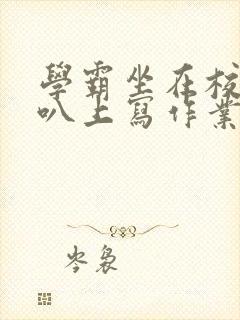 學霸坐在校
叭上寫作業
岑裊